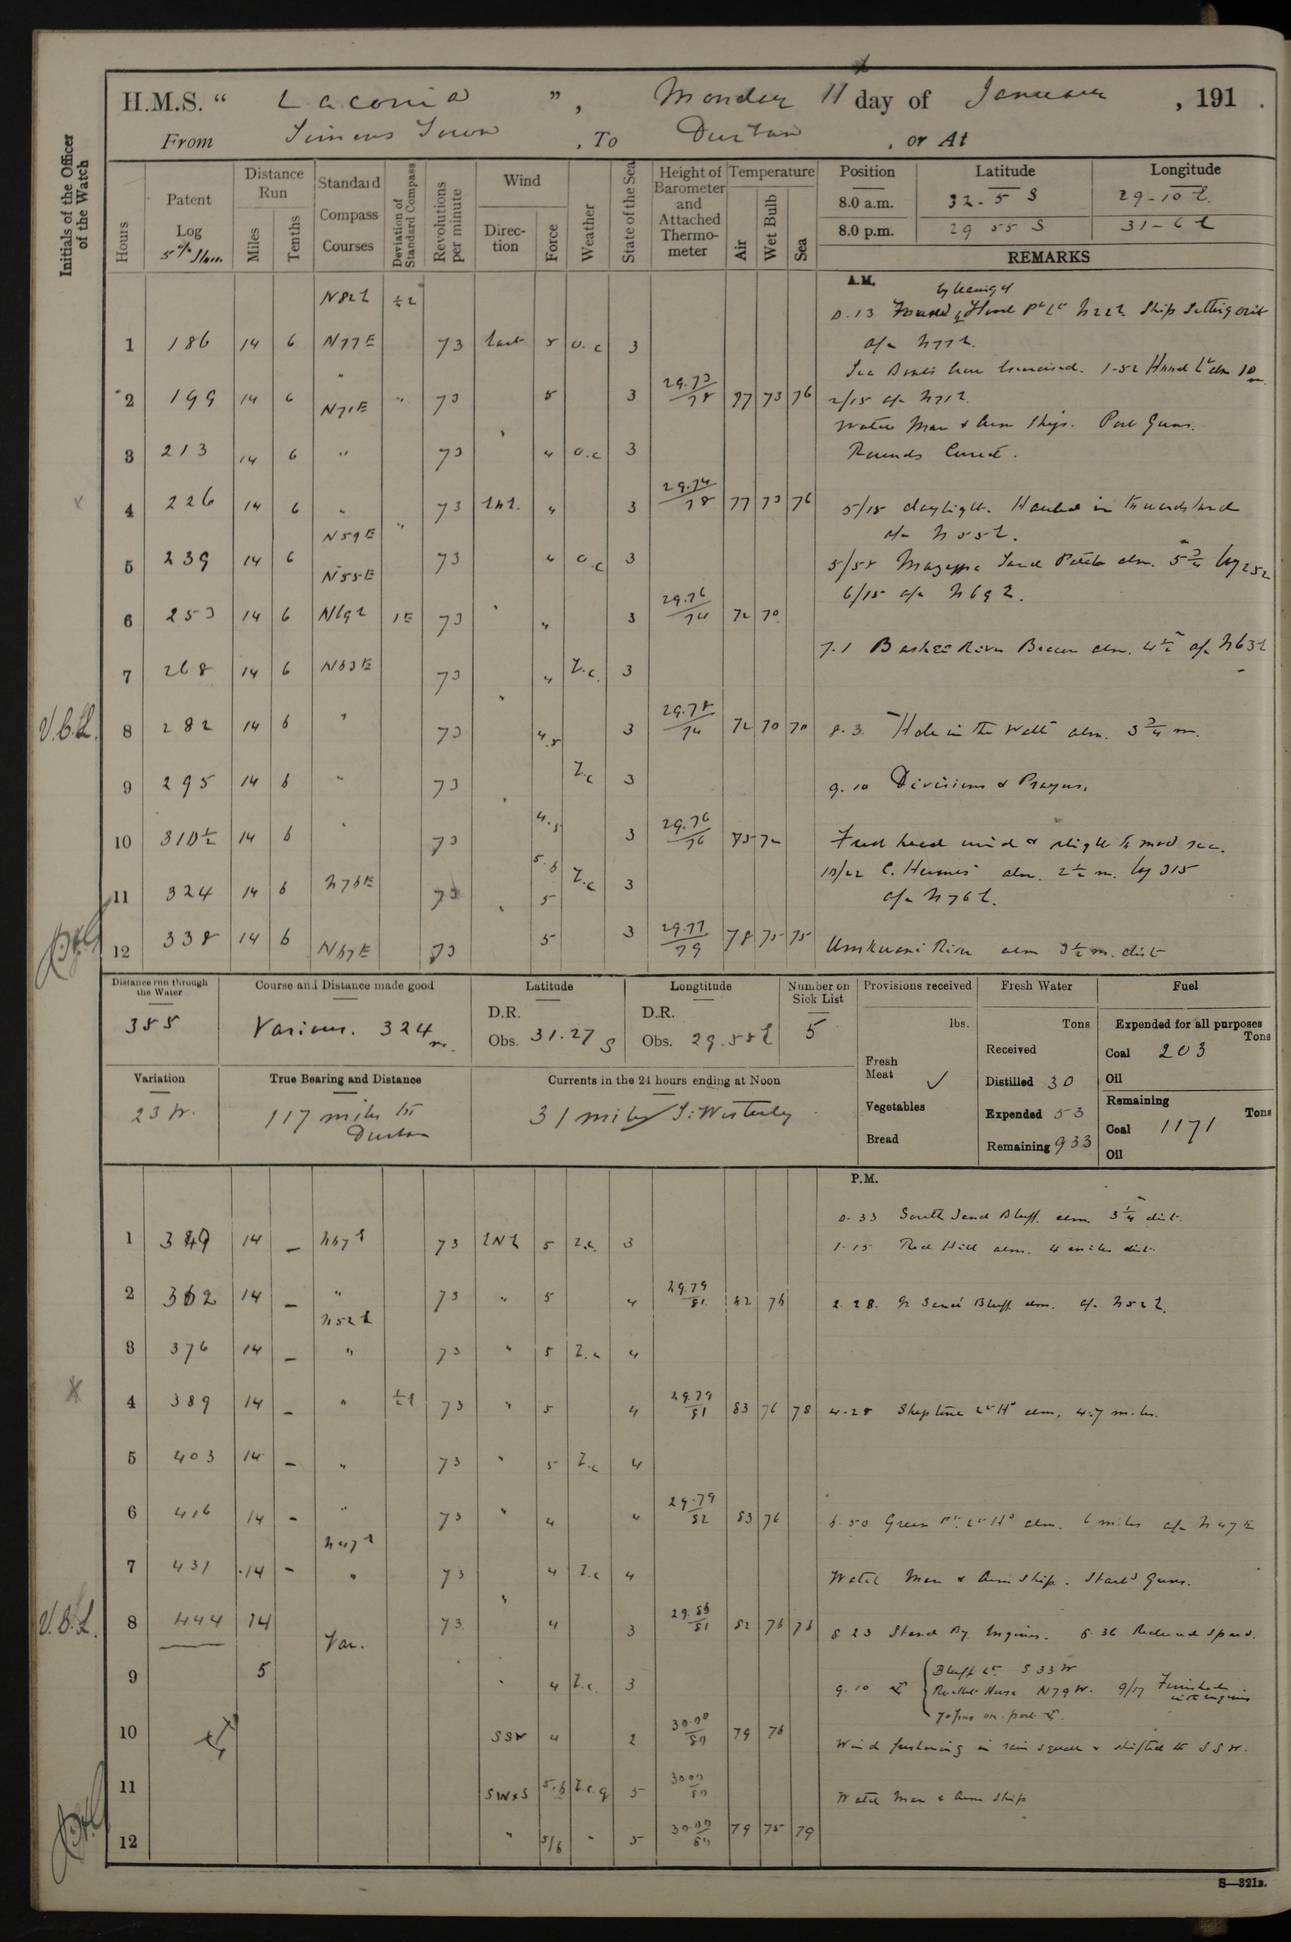 H.M.S. “ Laconia ”, Monday 11th day of January, 191 .
From Simons Town, To Durban, or At
Initials of the Officer of the Watch
Hours
Patent Log
Distance Run
Miles
Tenths
Standard Compass Courses
Deviation of Standard Compass
Revolutions per minute
Wind
Direction
Force
Weather
State of the Sea
Height of Barometer and Attached Thermometer
Temperature
Air
Wet Bulb
Sea
Position Latitude Longitude
8.0 a.m. 32-5 S 29-10 E.
8.0 p.m. 29 55 S 31-6 E
REMARKS
A.M.
N82E ½E
a/c N77E.
1 186 14 6 N77E 73 East 5 o.c 3
2 199 14 6 " N71E " 73 5 3 29.73/78 77 73 76 2/15 a/c N71E.
Watch Man & Arm Ships. Port Guns.
3 213 14 6 " 73 " 4 o.c 3 Rounds Correct.
4 226 14 6 " N59E " 73 ENE. 4 3 29.74/78 77 73 76 5/15 daylight. Hauled in towards land
a/c N55E.
5 239 14 6 N55E 73 4 o.c 3
6/15 a/c N69E.
6 253 14 6 N69E 1E 73 " 4 3 29.76/74 72 70
7.1 Bashee River Beacon abm. 4½ a/c N63E
7 268 14 6 N63E 73 4 Z.c. 3
8 282 14 6 " 73 " 4.5 3 29.78/74 72 70 70 8.3. "Hole in the Wall" abm. 3¾ m.
9 295 14 6 " 73 " Z.c 3 9.10 Divisions & Prayers.
10 310½ 14 6 " 73 4.5 3 29.76/76 75 72 Fresh head wind & slight to mod sea.
10/22 C. Hermes abm. 2½ m. log 315
11 324 14 6 N76E 73 " 5.6 5 Z.c 3 a/c N76E.
12 338 14 6 N67E 73 5 3 29.77/79 78 75 75 Umkwani River abm 3½ m. dist
Distance run through the Water
355
Course and Distance made good
Various. 324 m.
Latitude
D.R.
Obs. 31.27 S
Longtitude
D.R.
Obs. 29.58 E
Number on Sick List
5
Provisions received
lbs.
Fresh Meat ✓
Vegetables
Bread
Fresh Water
Tons
Received
Distilled 30
Expended 53
Remaining 933
Fuel
Expended for all purposes
Tons
Coal 203
Oil
Remaining
Tons
Coal 1171
Oil
Variation
23 W.
True Bearing and Distance
117 miles to Durban
Currents in the 24 hours ending at Noon
31 miles S: Westerly
P.M.
0.33 South Sand Bluff. abm. 3¼ dist.
1 349 14 – N67E 73 ENE 5 Z.c. 3 1.15 Red Hill abm. 4 miles dist.
2 362 14 – " N52E 73 " 5 4 29.79/81 82 76 2.28. N Sand Bluff abm. a/c N52E.
3 376 14 – " 73 " 5 Z.c 4
4 389 14 – " ½E 73 " 5 4 29.79/81 83 76 78 4.28 Shepstone Lt Ho abm, 4.7 miles.
5 403 14 – " 73 " 5 Z.c 4
6 416 14 – " N47E 73 " 4 " 29.79/82 83 76 6.50 Green Pt. Lt Ho abm. 6 miles a/c N47E
7 431 14 – " 73 4 Z.c 4 Watch Man & Arm Ship. Starbd Guns.
8 444 14 Var. 73 " 4 3 29.86/81 82 76 76 8 23 Stand By Engines. 8.36 Reduced speed.
9 5 " 4 Z.c. 3 9.10 ⚓ { Bluff Lt. S 33 W
N79W. 9/17 Finished with engines
10 ⚓ SSW 4 2 30.00/80 79 76 Wind freshening in rain squall & shifted to SSW.
11 SWxS 5.6 Z.c.q 5 30.00/80 Watch Man & Arm Ship
12 " 5/6 " 5 30.00/80 79 75 79
S—321B.